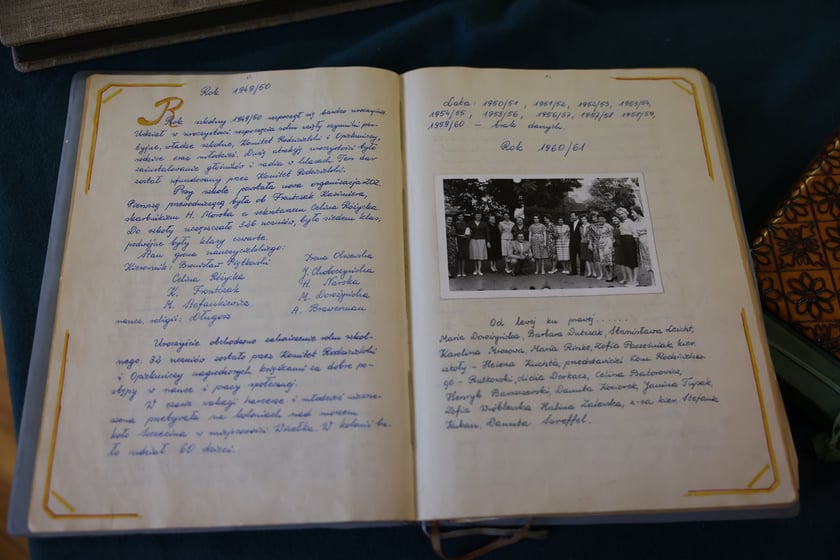 Rok 1949/50
Rok szkolny 1949/50 rozpoczął się bardzo uroczyście.
Udział w uroczystości rozpoczęcia roku wzięły czynniki par-
tyjne, władze szkolne, Komitet Rodzicielski i Opiekuńczy,
rodzice oraz młodzież. Dużą atrakcją uroczystości było
zainstalowanie głośników i radia w klasach. Ten dar
został ufundowany przez Komitet Rodzicielski.
Przy szkole powstała nowa organizacja ZOZ.
Pierwszą przewodniczącą była ob. Frontczak Kazimiera,
skarbnikiem H. Marska a sekretarzem Celina Różycka.
Do szkoły uczęszczało 326 uczniów, było siedem klas,
podwójne były klasy czwarte.
Stan grona nauczycielskiego:
Kierownik: Bronisław Piątkowski
Celina Różycka
K. Frontczak
M. Stefankiewicz
naucz. religii: Długosz
Irena Olszewska
J. Chołoczyńska
H. Marska
M. Dorożyńska
A. Braverman
Uroczyście obchodzono zakończenie roku szkol-
nego. 32 uczniów zostało przez Komitet Rodzicielski
i Opiekuńczy nagrodzonych książkami za dobre po-
stępy w nauce i pracy społecznej.
W czasie wakacji harcerze i młodzież niezrze-
szona przebywała na koloniach nad morzem
koło Szczecina w miejscowości Wisełka. W kolonii bra-
ło udział 60 dzieci.
Lata: 1950/51, 1951/52, 1952/53, 1953/54,
1954/55, 1955/56, 1956/57, 1957/58 1958/59,
1959/60 - brak danych.
Rok 1960/61
Od lewej ku prawej......
Maria Dorożyńska, Barbara Dubczak, Stanisława Leicht,
Karolina Maria Rinke, Zofia kier.
szkoły - Helena Kuchta, przedstawiciel Kom. Rodzicielskie-
go - Rutkowski, Lidia Derkacz, Celina
Henryk Danuta Janina Tupak,
Zofia Wróblewska Halina Zalewska, z-ca kier. Stefania
Kuban, Danuta